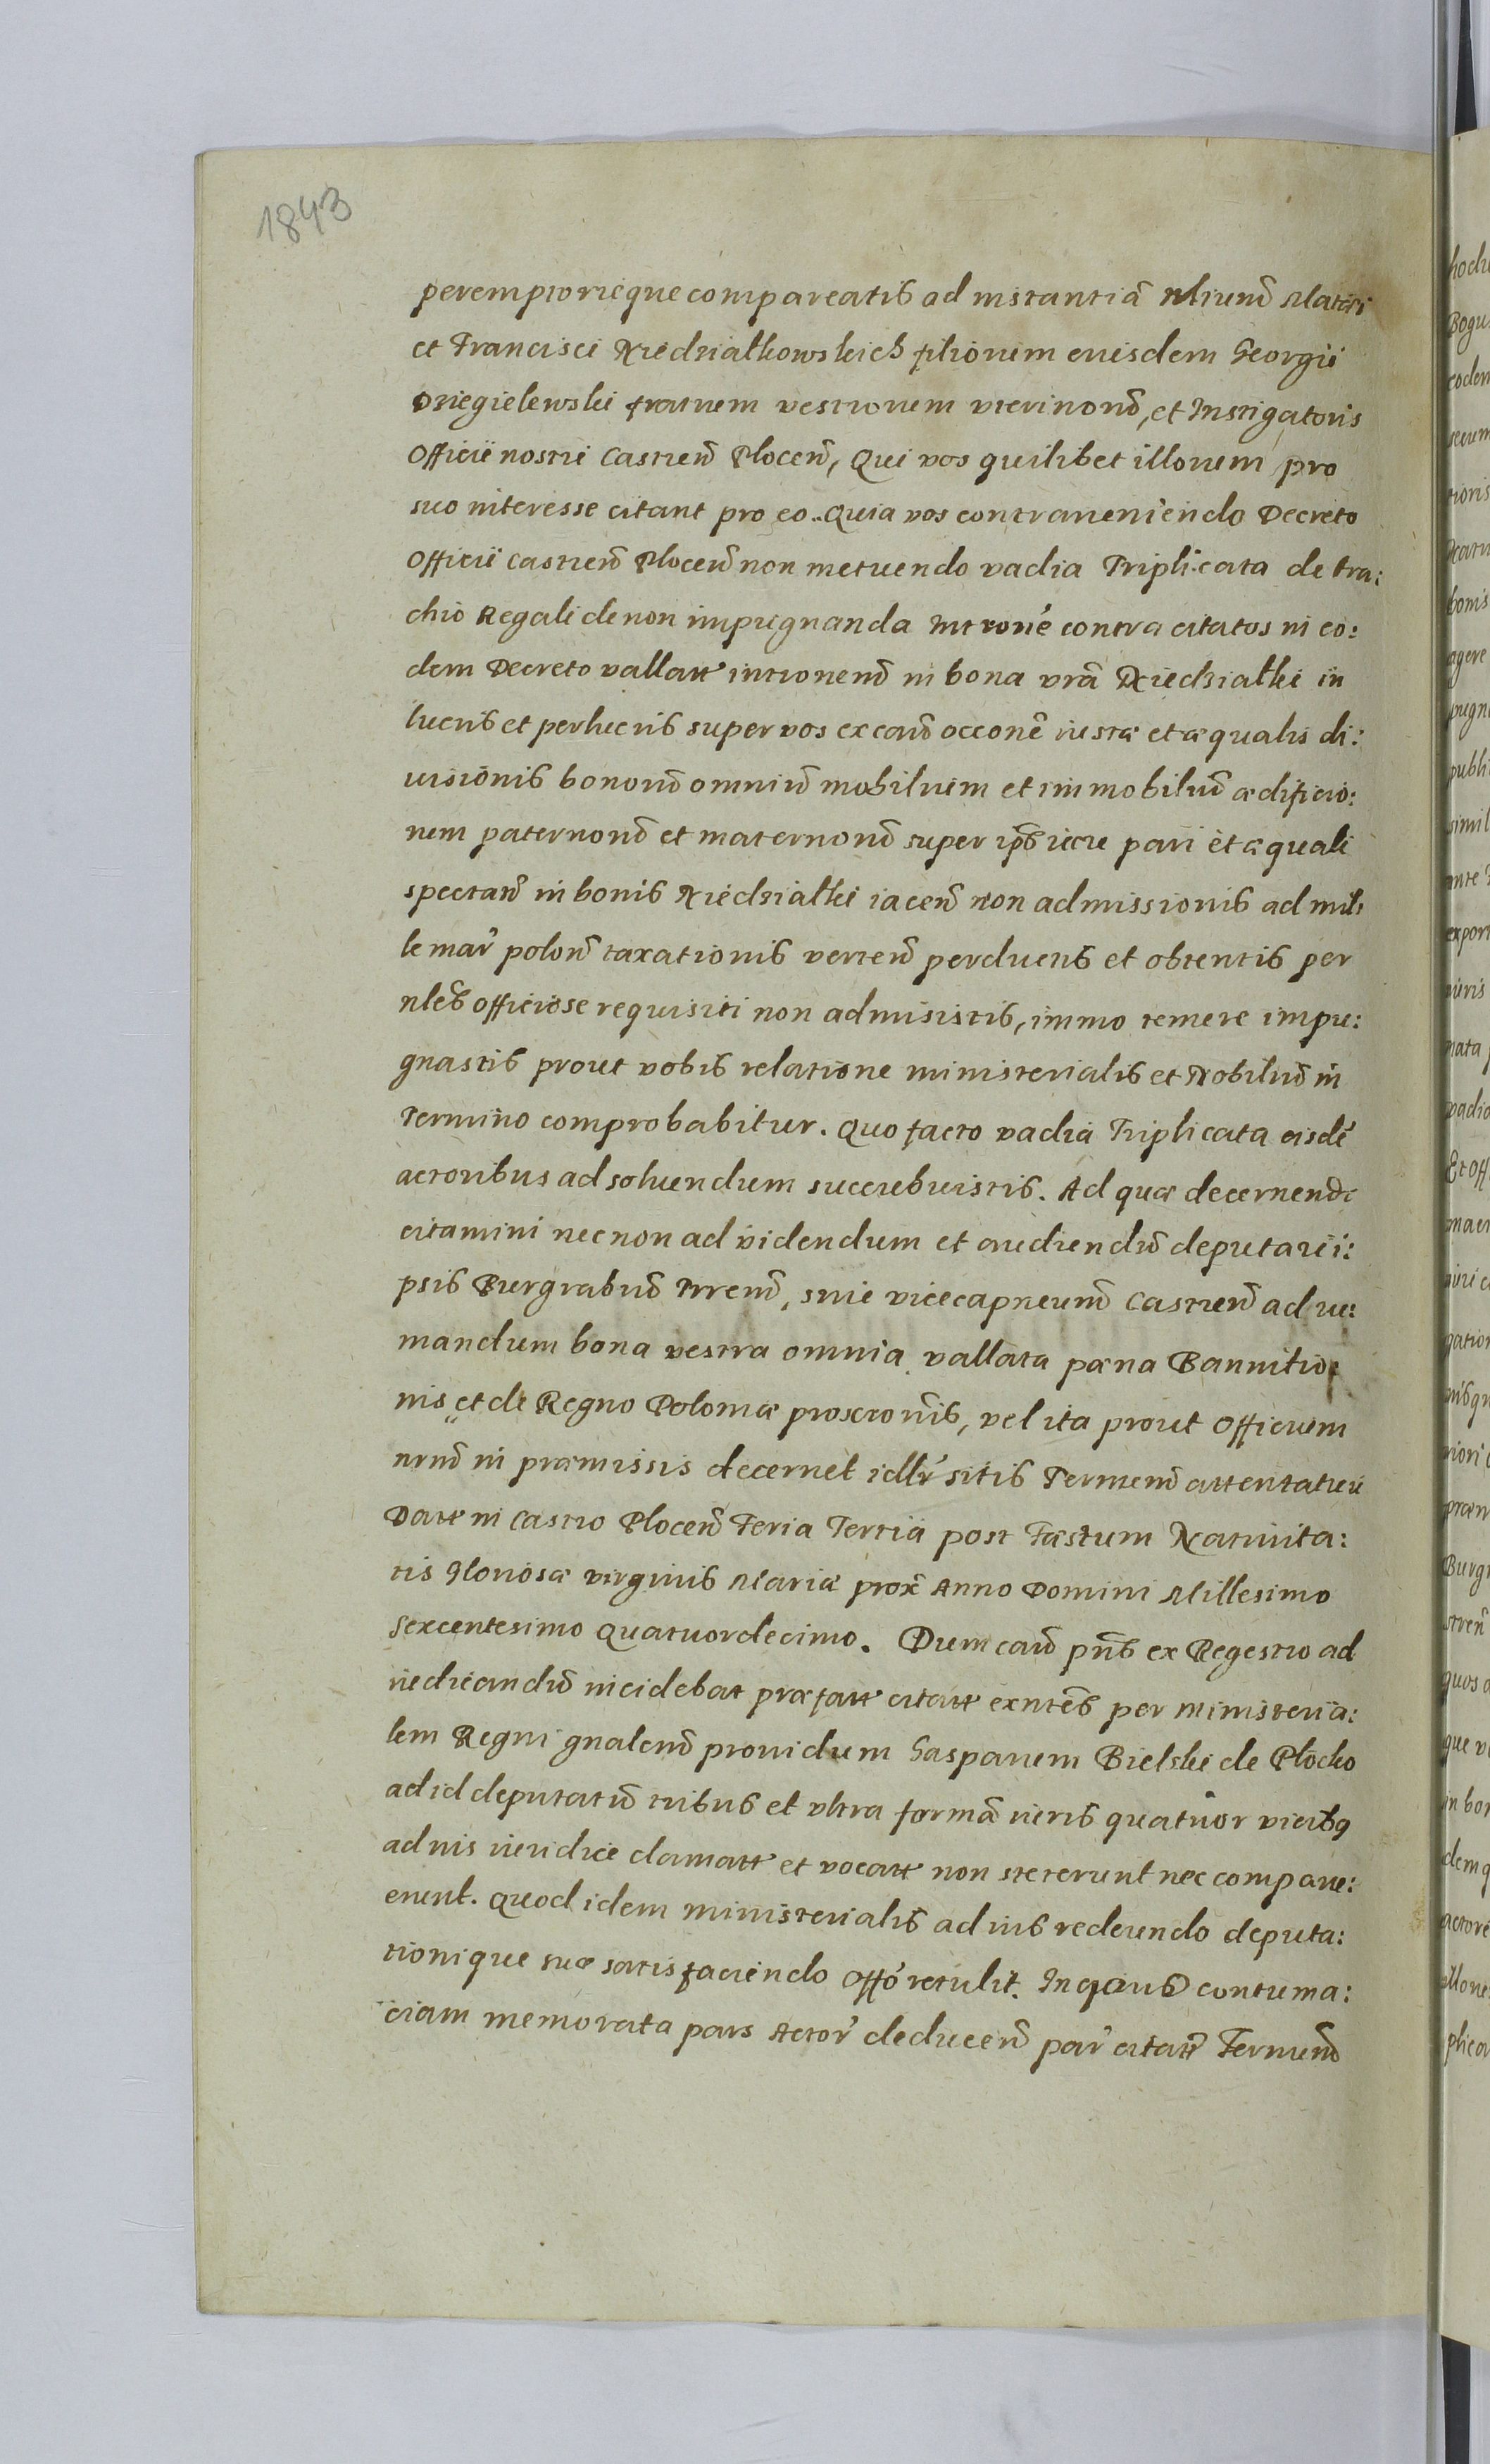 1843
peremptorieque compareatis ad instantiā Nliumō Mathei
et Francisci Niedzialkowskich filiorum eiusdem Georgii
Dziegielewski fratrum vestrorum vterinorō, et Instigatoris
Officii nostri Castreñ Ploceñ, Qui vos quilibet illorum pro
suo interesse citant pro eo.. Quia vos contraueniendo Decreto
Officii Castreñ Ploceñ non metuendo vadia Triplicata de bra:
chio Regali de non impugnanda Intronē contra citatos in eo:
dem Decreto vallatt intromenō in bona vrā Niedzialki in
lucris et perlucris super vos ex cauō occonē iustæ et æqualis di:
uisionis bonorō omniū mobilium et immobiliū ædificio:
rum paternorō et maternorō super ipōs iure pari et æquali
spectañ in bonis Niedzialki iaceñ non admissionis ad mil:
le mar̃ poloñ taxationis verteñ perductis et obtentis per
nlēs officiose requisiti non admisistis, immo temere impu:
gnastis prout vobis relatione ministerialis et Nobiliū in
Termino comprobabitur. Quo facto vadia Triplicata eisdē
actoribus ad soluendum succubuistis. Ad quæ decernenda
citamini nec non ad videndum et audiendū deputari i:
psis Burgrabiū Trrenō, siue vicecapneumō Castreñ ad ui:
mandum bona vestra omnia vallata pæna Bannitio:
nis et de Regno Poloniæ proscronīs, vel ita prout Officium
nrmō in præmissis decernet idlr̃ sitis Terminō attentaturi
Datt in Castro Ploceñ Feria Tertia post Fæstum Natiuita:
tis Gloriosæ virginis Mariæ prox̃ Anno Domini Millesimo
Sexcentesimo Quatuordecimo. Dum cauō pn̄s ex Regestro ad
iudicandū incidebat præfatt citatt exntēs per Ministeria:
lem Regni gnalemō prouidum Gasparum Bielski de Plocko
ad id deputatū tribus et vltra formā iuris quatuor vicibus
ad nis iuridice clamatt et vocatt non steterunt nec comparu:
erunt. Quod idem ministerialis ad iuis redeundo deputa:
tionique suæ satisfaciendo Offō retulit. In quorūs contuma:
ciam memorata pars Actor̃ deduceñ par̃ citatt Terminō